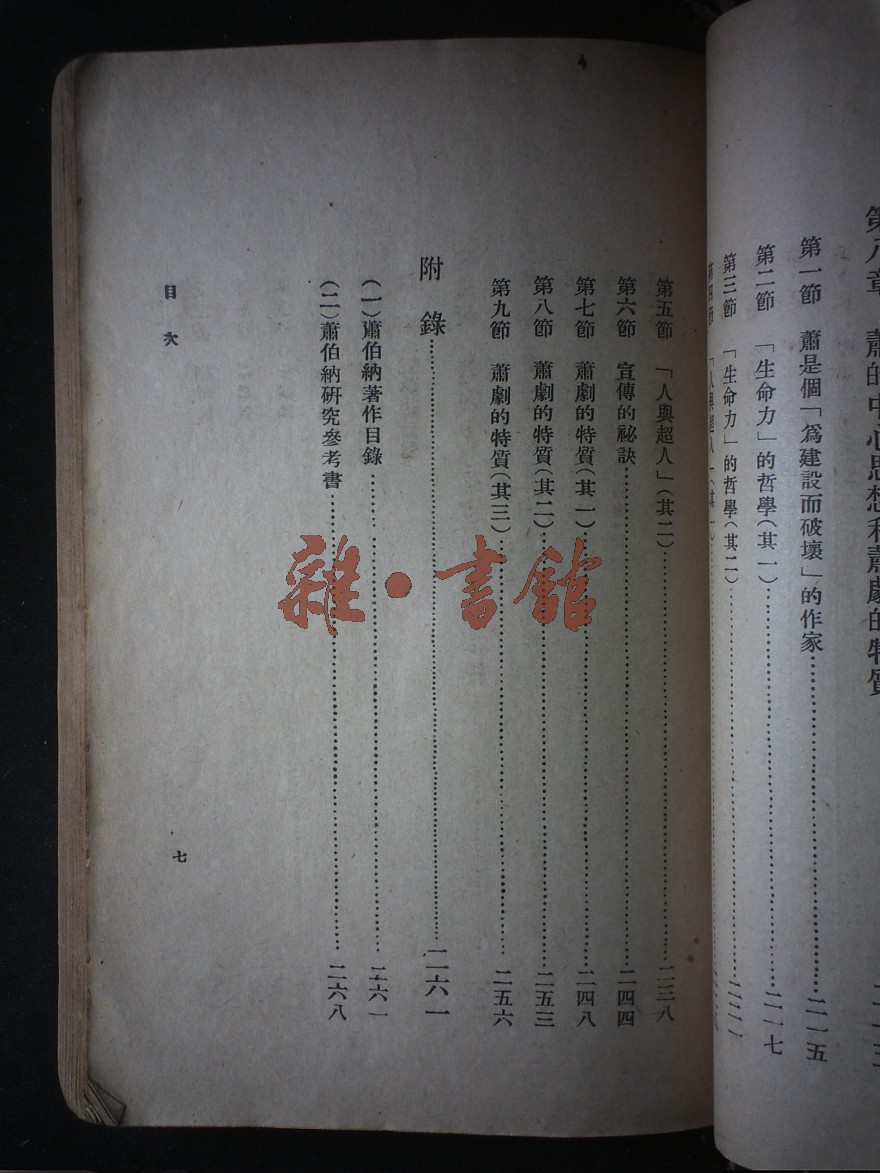 第八章　蕭的中心思想和蕭劇的特質
第一節　蕭是個「爲建設而破壞」的作家……二一五
第二節　「生命力」的哲學(其一)……二一七
第三節　「生命力」的哲學(其二)……二二一
第四節　「人與超人」(其一)
第五節　「人與超人」(其二)……二三八
第六節　宣傳的祕訣……二四四
第七節　蕭劇的特質(其一)……二四八
第八節　蕭劇的特質(其二)……二五三
第九節　蕭劇的特質(其三)……二五六
附　錄……二六一
(一)蕭伯納著作目錄……二六一
(二)蕭伯納研究參考書……二六八
目　次
七
雜·書館